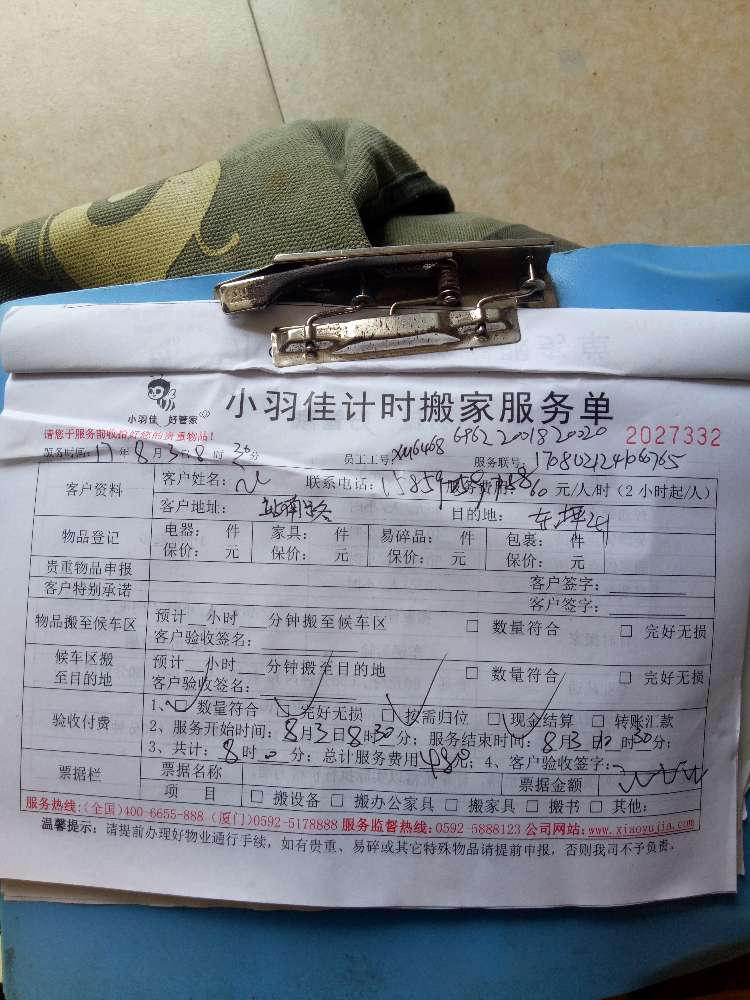 小羽佳 好管家
小羽佳计时搬家服务单
请您于服务前收拾好您的贵重物品!
2027332
服务时间:17年8月3日8时30分 员工工号 xm6468 6962 2001820020 服务联号:
客户资料 客户姓名: 联系电话: 服务费用:60元/人/时(2小时起/人)
客户地址: 站南路 目的地: 东坪
物品登记 电器: 件 家具: 件 易碎品: 件 包裹: 件
保价: 元 保价: 元 保价: 元 保价: 元
贵重物品申报 客户签字:
客户特别承诺 客户签字:
物品搬至候车区 预计__小时___分钟搬至候车区 □ 数量符合 □ 完好无损
客户验收签名:
候车区搬至目的地 预计__小时___分钟搬至目的地 □ 数量符合 □ 完好无损
客户验收签名:
验收付费 1、□ 数量符合 □ 完好无损 □ 按需归位 □ 现金结算 □ 转账汇款
2、服务开始时间:8月3日8时30分;服务结束时间:8月3日 时30分;
3、共计:8时0分;总计服务费用480元;4、客户验收签字:
票据栏 票据名称 票据金额
项 目 □ 搬设备 □ 搬办公家具 □ 搬家具 □ 搬书 □ 其他:
服务热线:(全国)400-6655-888 (厦门)0592-5178888 服务监督热线:0592-5888123 公司网站:www.xiaoyujia.com
温馨提示:请提前办理好物业通行手续,如有贵重、易碎或其它特殊物品请提前申报,否则我司不予负责。